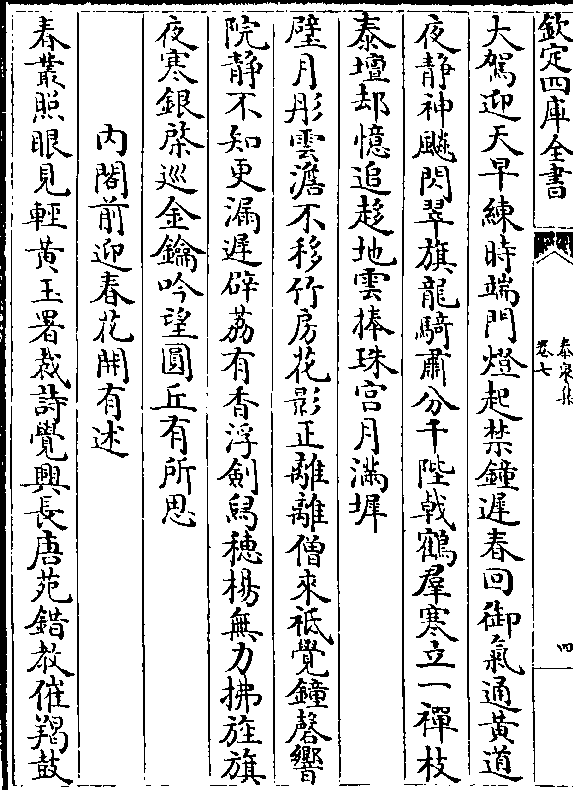 欽定四庫全書
大駕迎天早練時端門燈起禁鐘遲春回御氣通黃道
夜静神飇閃翠旗龍騎肅分千陛戟鶴羣寒立一禪枝
泰壇却憶追趍地雲捧珠宫月滿墀
璧月彤雲澹不移竹房花影正離離僧來祗覺鐘磬響
院静不知更漏遲辟荔有香浮劍舄穗楊無力拂旌旗
夜寒銀棨巡金鑰吟望圓丘有所思
内閣前迎春花開有述
春叢照眼見輕黃玉署裁詩覺興長唐苑錯教催羯鼓
泰泉集
卷七
四